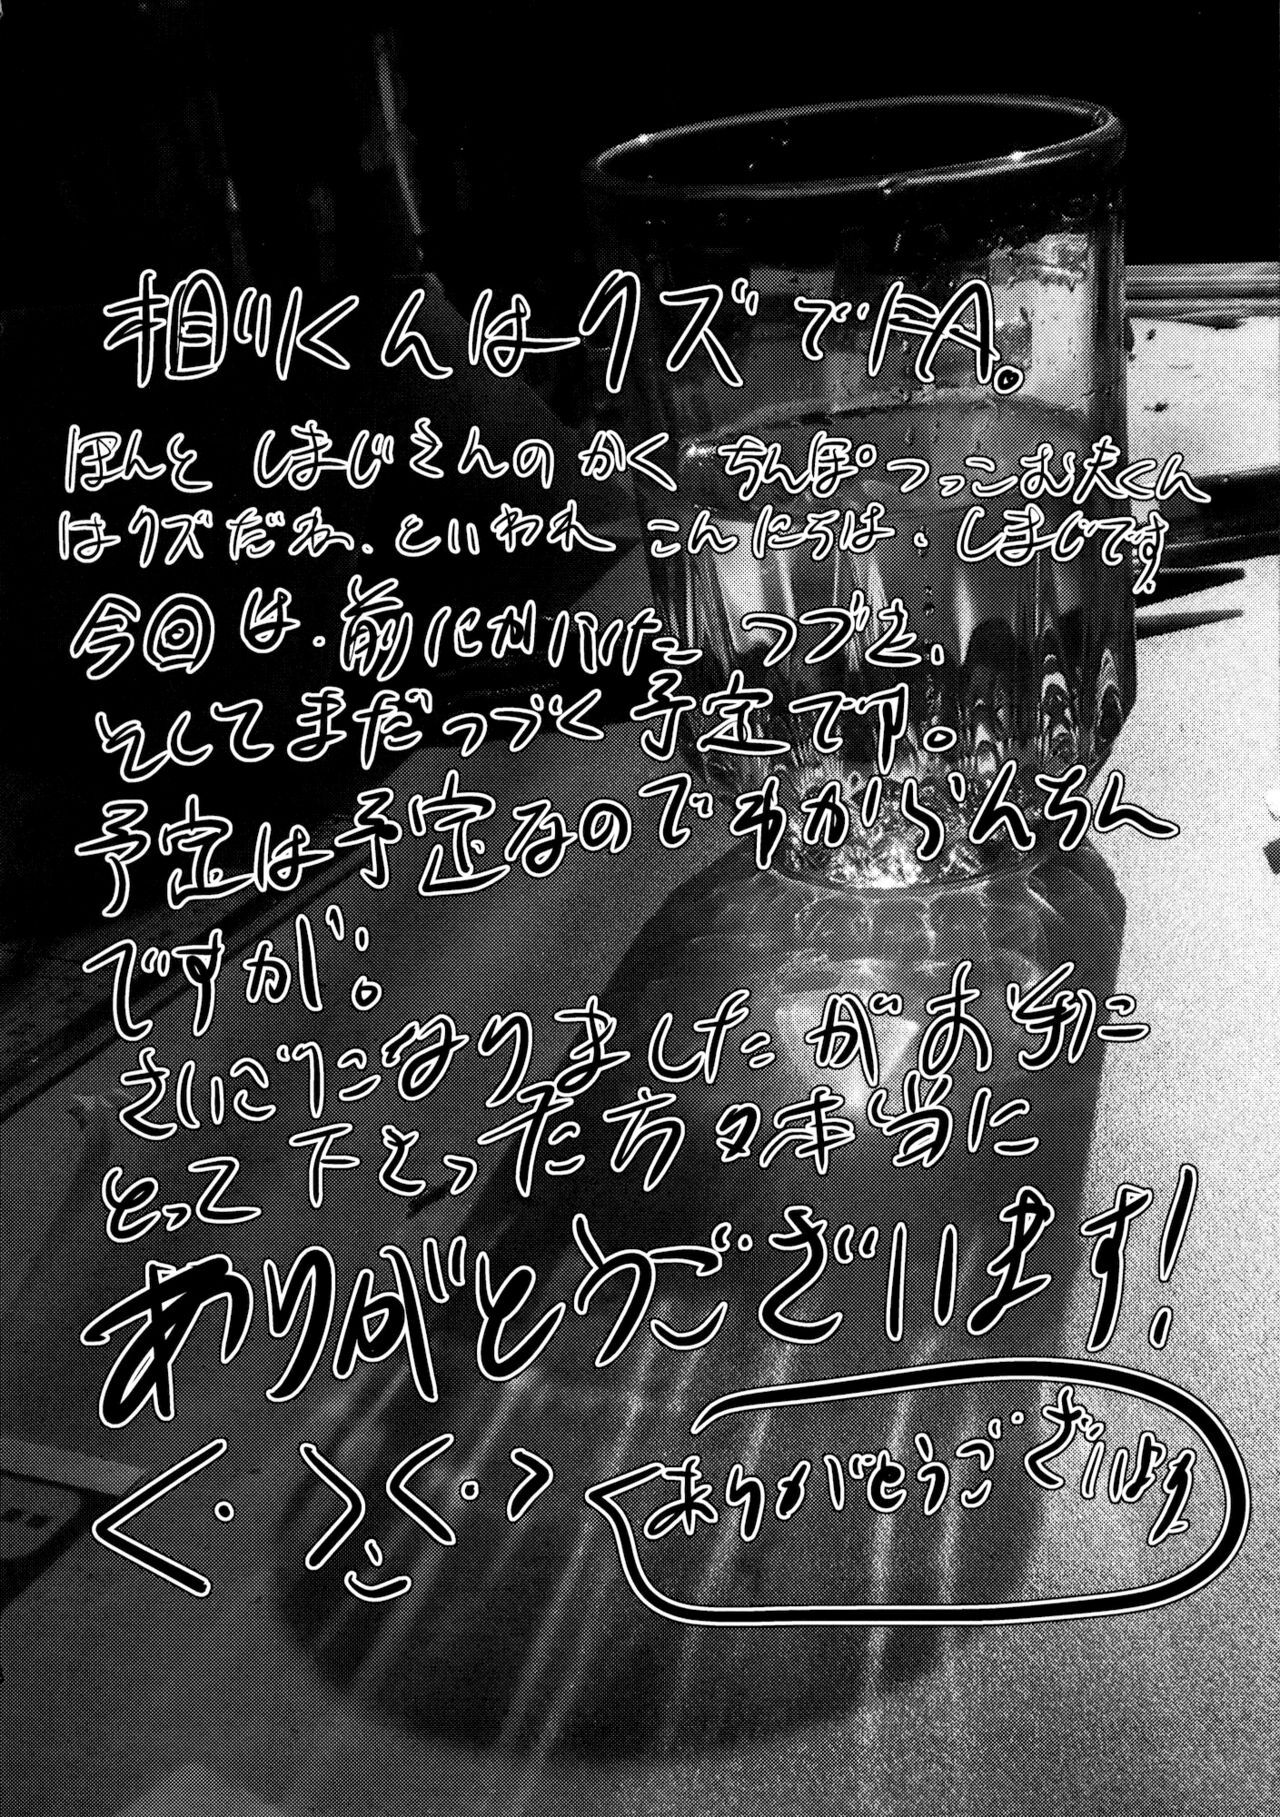 相川くんはクズでFA。
ほんと しまじさんのかく ちんぽつっこむ夫くん
はクズだね、といわれ こんにちは、しまじです。
今回は、前にかいた つづき、
そしてまだつづく予定です。
予定は予定なのでわからんちん
ですが!。
さいごになりましたがお手に
とって下さった方々本当に
ありがとうございます!
ありがとうござい